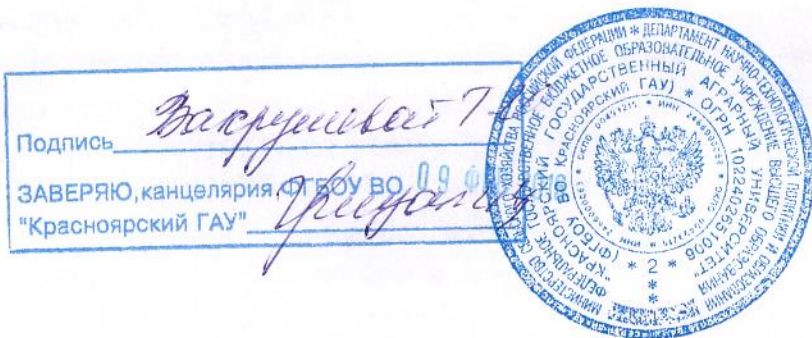 Подпись Вакрушевой Т
ЗАВЕРЯЮ, канцелярия ФГБОУ ВО 09
"Красноярский ГАУ"
МИНИСТЕРСТВО СЕЛЬСКОГО ХОЗЯЙСТВА РОССИЙСКОЙ ФЕДЕРАЦИИ * ДЕПАРТАМЕНТ НАУЧНО-ТЕХНОЛОГИЧЕСКОЙ ПОЛИТИКИ И ОБРАЗОВАНИЯ
ФЕДЕРАЛЬНОЕ ГОСУДАРСТВЕННОЕ БЮДЖЕТНОЕ ОБРАЗОВАТЕЛЬНОЕ УЧРЕЖДЕНИЕ ВЫСШЕГО ОБРАЗОВАНИЯ
"КРАСНОЯРСКИЙ ГОСУДАРСТВЕННЫЙ АГРАРНЫЙ УНИВЕРСИТЕТ"
(ФГБОУ ВО КРАСНОЯРСКИЙ ГАУ) * ОГРН 1022402651006
* 2 *